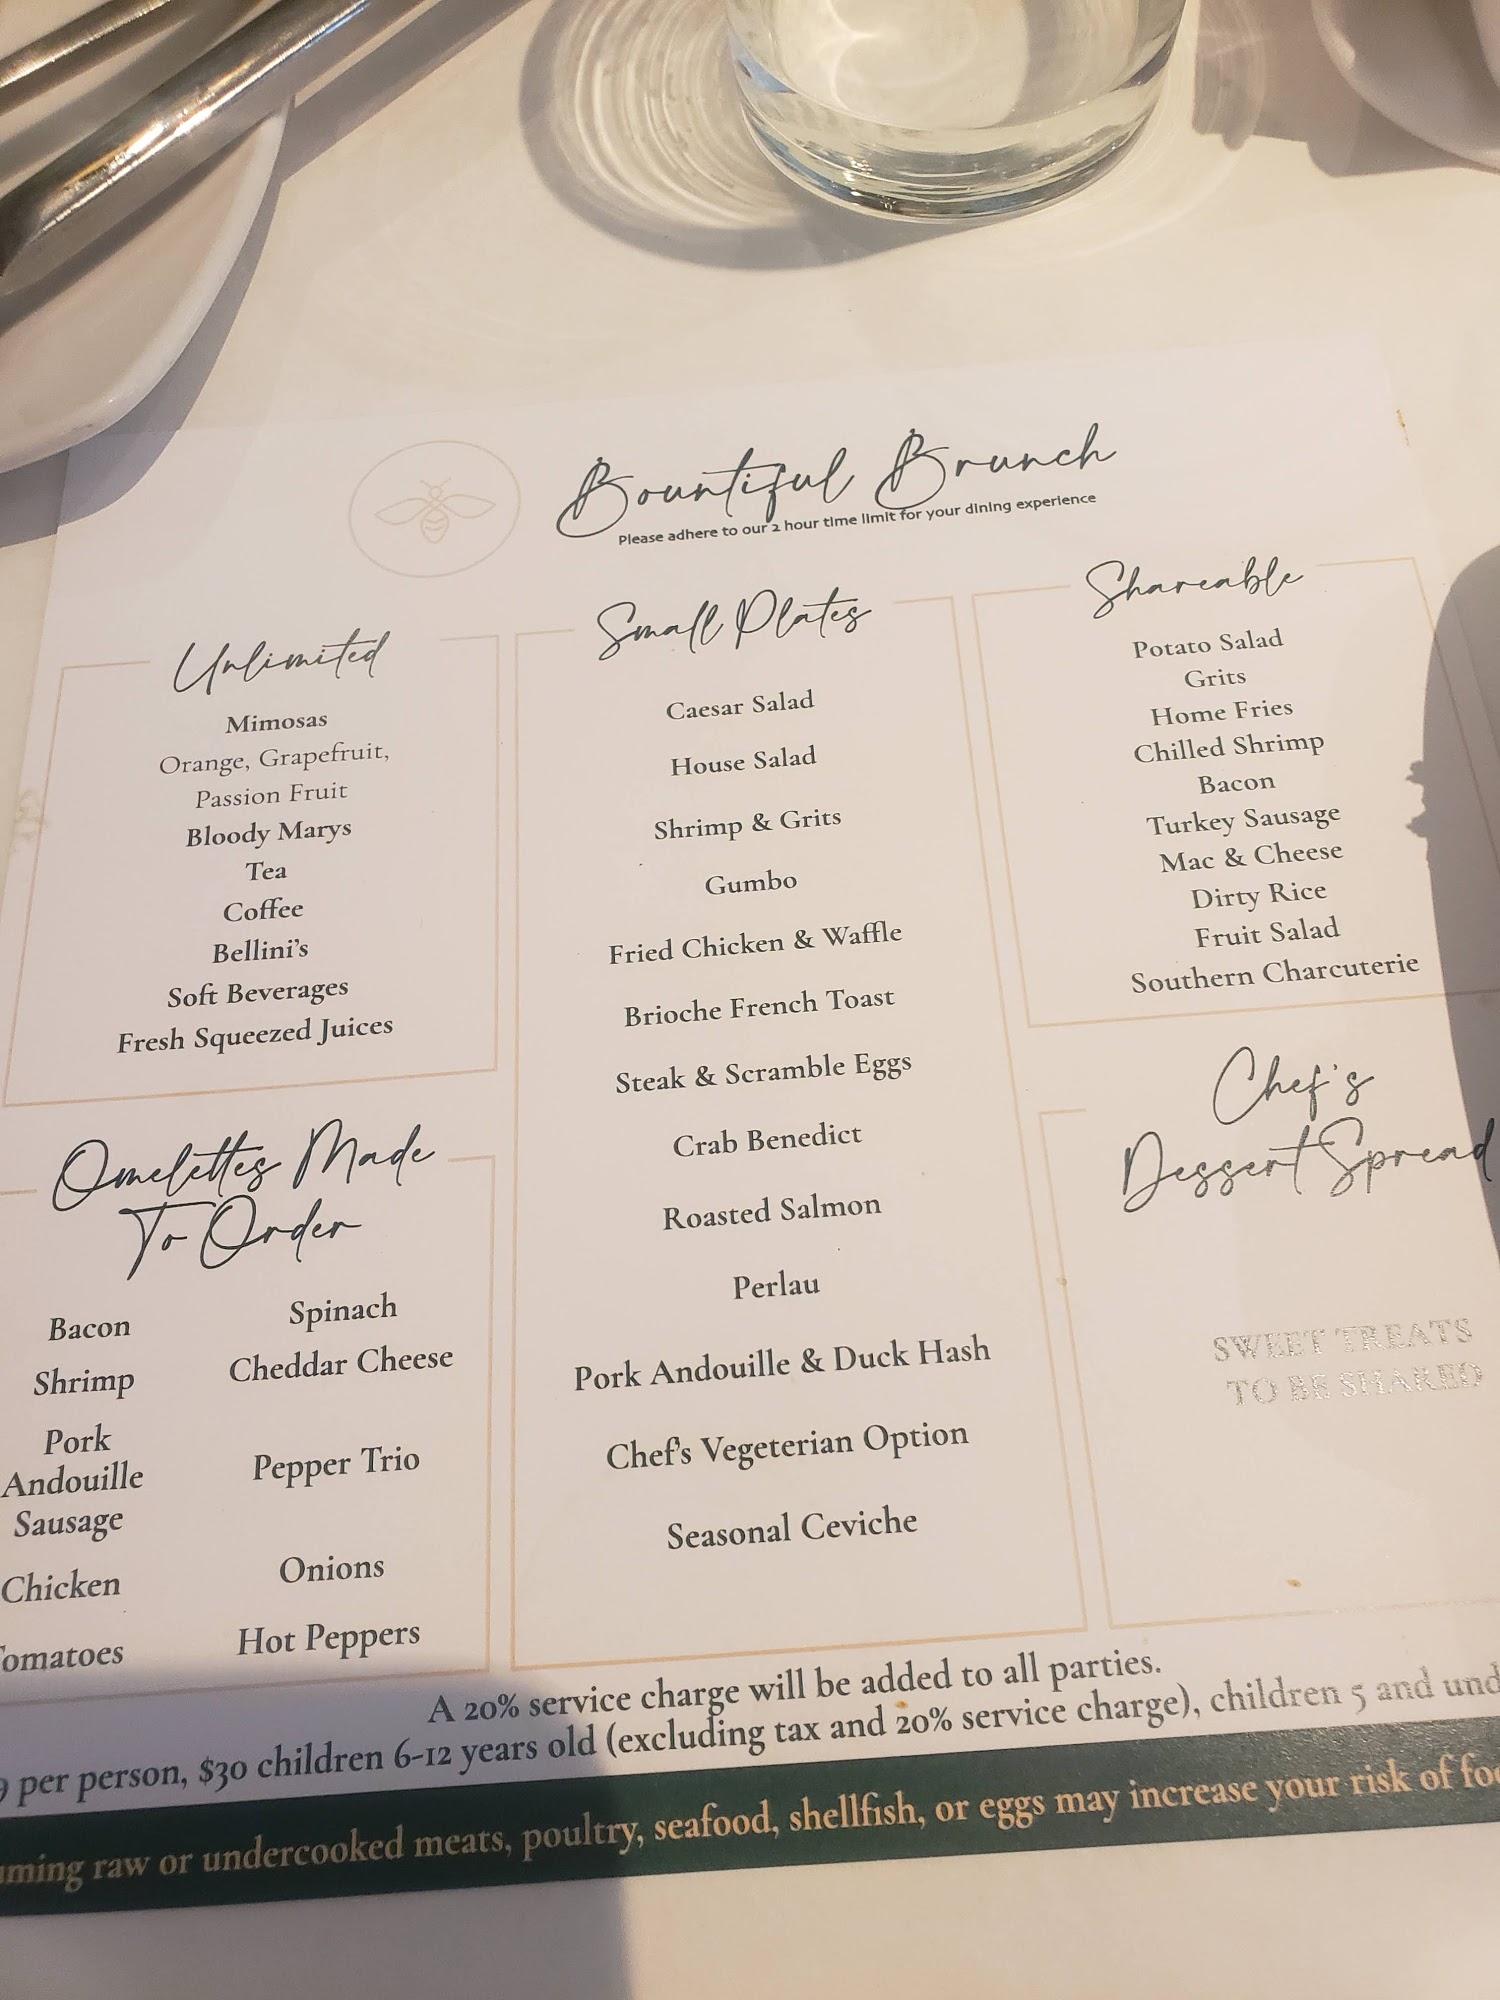 Bountiful Brunch
Please adhere to our 2 hour time limit for your dining experience
Unlimited
Mimosas
Orange, Grapefruit,
Passion Fruit
Bloody Marys
Tea
Coffee
Bellini's
Soft Beverages
Fresh Squeezed Juices
Omelettes Made
To Order
Bacon
Shrimp
Pork
Andouille
Sausage
Chicken
omatoes
Spinach
Cheddar Cheese
Pepper Trio
Onions
Hot Peppers
Small Plates
Caesar Salad
House Salad
Shrimp & Grits
Gumbo
Fried Chicken & Waffle
Brioche French Toast
Steak & Scramble Eggs
Crab Benedict
Roasted Salmon
Perlau
Pork Andouille & Duck Hash
Chef's Vegeterian Option
Seasonal Ceviche
Shareable
Potato Salad
Grits
Home Fries
Chilled Shrimp
Bacon
Turkey Sausage
Mac & Cheese
Dirty Rice
Fruit Salad
Southern Charcuterie
Chef's
Dessert Spread
SWEET TREATS
TO BE SHARED
A 20% service charge will be added to all parties.
9 per person, $30 children 6-12 years old (excluding tax and 20% service charge), children 5 and und
ming raw or undercooked meats, poultry, seafood, shellfish, or eggs may increase your risk of foo